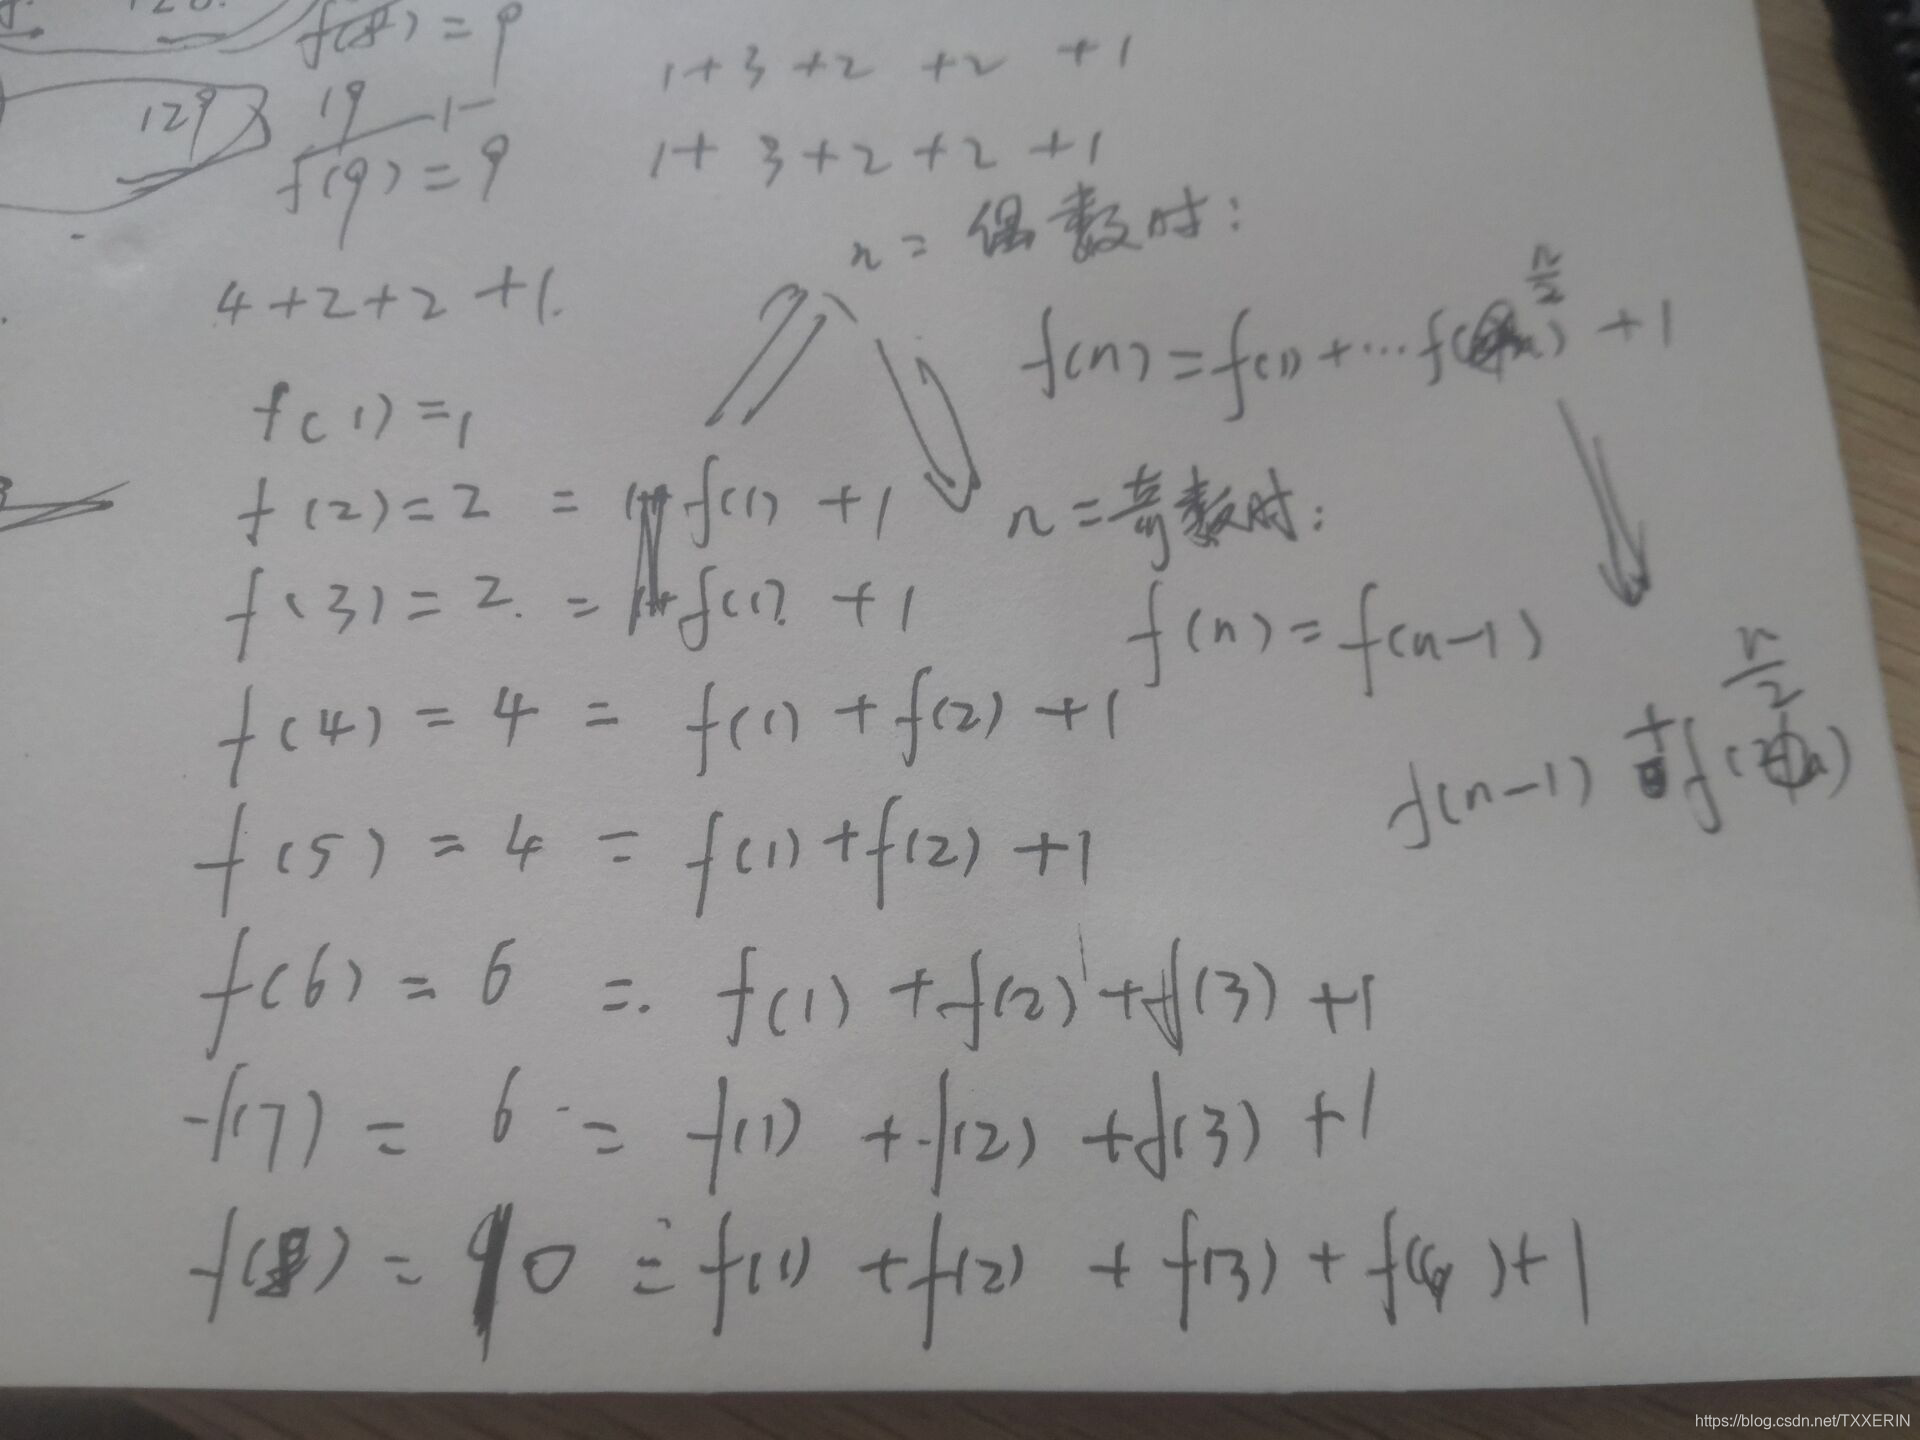 f(8) = 9
1+3+2 +2 +1
129
19
f(9) = 9
1+3+2+2+1
n = 偶数时:
4+2+2+1.
n/2
f(n) = f(1) + ... f( ) +1
f(1) = 1
f(2) = 2 = f(1) +1
n = 奇数时:
f(3) = 2. = f(1) +1
f(n) = f(n-1)
f(4) = 4 = f(1) + f(2) +1
n/2
f(n-1) + f( )
f(5) = 4 = f(1) + f(2) +1
f(6) = 6 = f(1) + f(2) + f(3) +1
f(7) = 6 = f(1) + f(2) + f(3) +1
f(8) = 10 = f(1) + f(2) + f(3) + f(4) +1
https://blog.csdn.net/TXXERIN